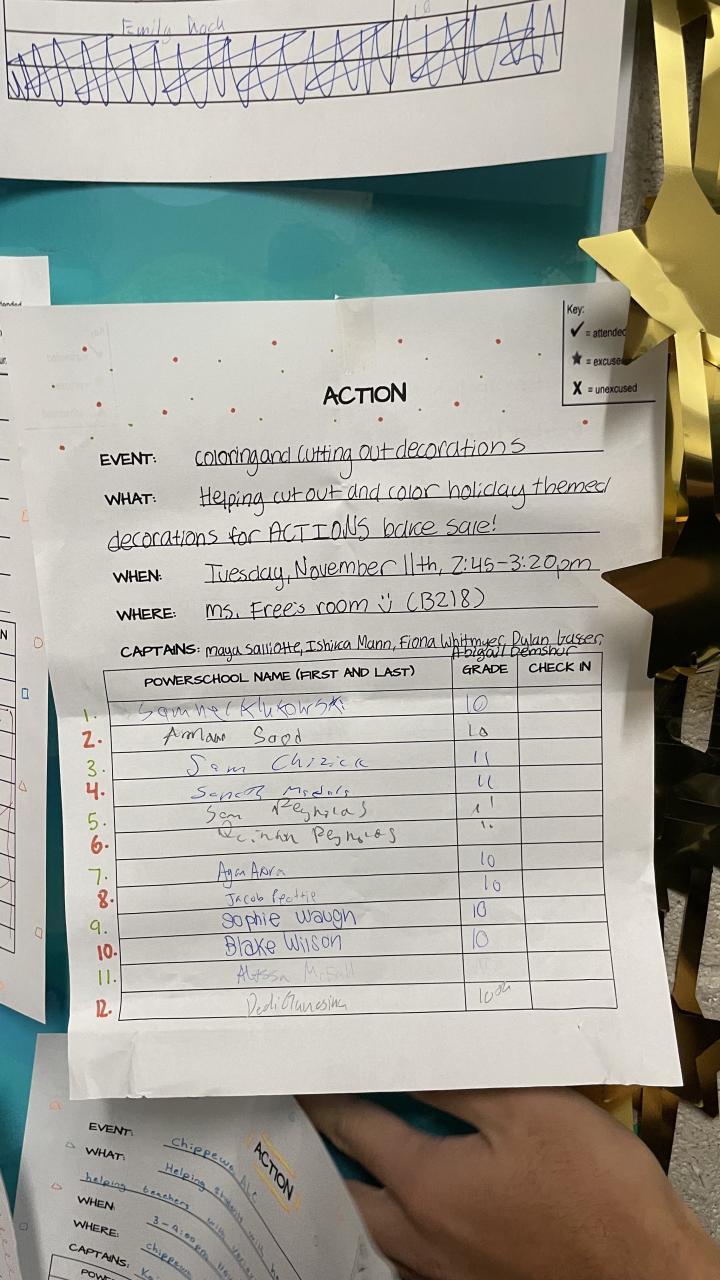 Emily
Key:
✓ = attended
★ = excuse
X = unexcused
ACTION
EVENT: coloring and cutting out decorations
WHAT: Helping cut out and color holiday themed
decorations for ACTIONS bake sale!
WHEN: Tuesday, November 11th, 2:45-3:20pm
WHERE: ms. Free's room (B218)
CAPTAINS: maya Salliotte, Ishika Mann, Fiona Whitmyer, Dylan Gasser,
Abigail Demshur
POWERSCHOOL NAME (FIRST AND LAST) GRADE CHECK IN
1. Samuel Klukowski 10
2. Arnav Sood 10
3. Sam Chizick 11
4. 11
5. Sam Reynolds 11
6. Quinton Reynolds 11
7. 10
8. Jacob 10
9. Sophie Waugh 10
10. Blake Wilson 10
11. Alyssa
12. 10th
EVENT: Chippewa
ACTION
WHAT: Helping students with
helping teachers with
WHEN:
3-4:00pm
WHERE:
Chippewa
CAPTAINS: